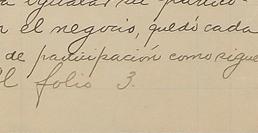 n el negocio, quedó cada
de participación como sigue
el folio 3.